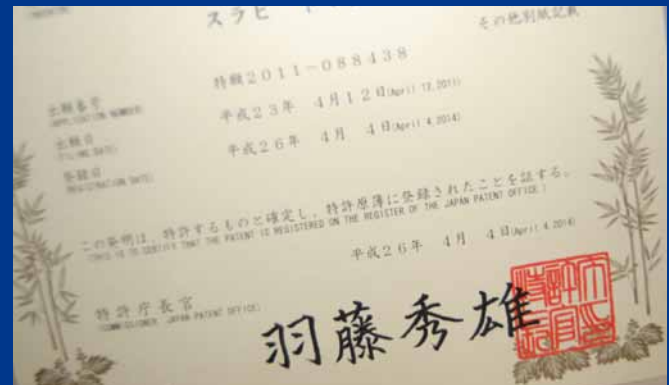 スラビ
その他別紙記載
出願番号
(APPLICATION NUMBER)
特願2011-088438
出願日
(FILING DATE)
平成23年 4月12日(April 12,2011)
登録日
(REGISTRATION DATE)
平成26年 4月 4日(April 4,2014)
この発明は、特許するものと確定し、特許原簿に登録されたことを証する。
(THIS IS TO CERTIFY THAT THE PATENT IS REGISTERED ON THE REGISTER OF THE JAPAN PATENT OFFICE.)
平成26年 4月 4日(April 4,2014)
特許庁長官
(COMMISSIONER, JAPAN PATENT OFFICE)
羽藤秀雄